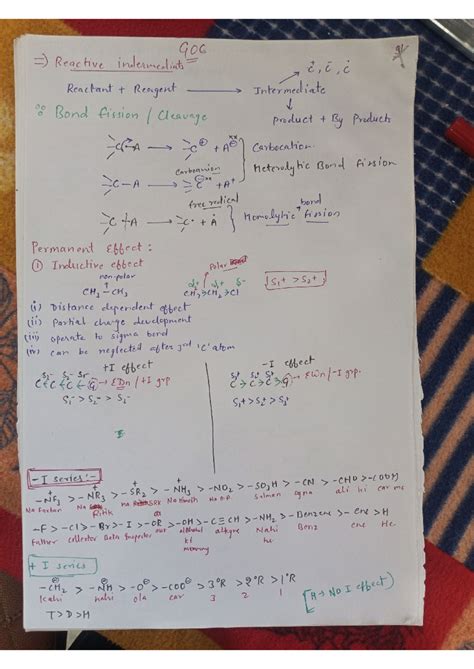 GOC
91
⇒) Reactive indermediats
Ċ, C̄, Ċ
Reactant + Reagent → Intermediate
↓
product + By Products
Bond fission / Cleavage
C-A → C⊕ + A⊖ Carbocation.
Carbanion
Heterolytic Bond fission
C-A → C⊖ + A+
free redical
C-A → Ċ + Ȧ } Homolytic bond fission
Permanent Effect :
① Inductive effect
non-polar
CH3-CH3
Polar
δ+ δ+ δ-
CH3>CH2>Cl
S1+ > S2+
(i) Distance dependent effect
(ii) Partial charge development
(iii) operate to sigma bond
(iv) can be neglected after 3rd 'C' atom
+I effect
C←C←C←G → EDn/+I grp.
S1- > S2- > S3-
-I effect
C→C→C→G → EWn/-I grp.
S1+ > S2+ > S3+
-I series :-
-NF3 > -NR3 > -SR2 > -NH3 > -NO2 > -SO3H > -CN > -CHO > -COOH
Ritik
Salman
ali hi car me
-F > -Cl > -Br > -I > -OR > -OH > -C≡CH > -NH2 > -Benzene > -Cne > H
Father collector Beta Inspector our alkohol alkyne Nahi Benz ene He
ki
he
+ I series
-CH2 > -NH > -O⊖ > -COO⊖ > 3°R > 2°R > 1°R
[H → No I effect]
Kahi nahi ola car 3 2 1
T > D > H